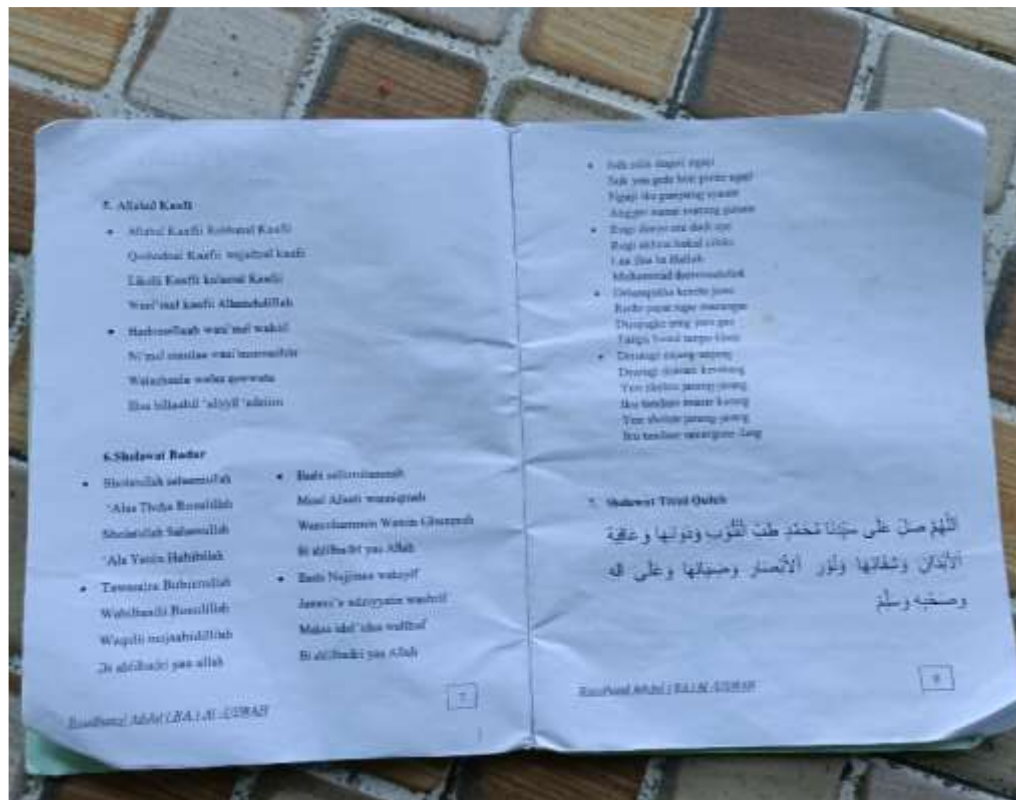 5. Allahul Kaafii
• Allahul Kaafii Robbunal Kaafii
Qoshodnal Kaafii wajadnal kaafii
Likulli Kaafii kafanal Kaafii
Wani'mal kaafii Alhamdulillah
• Hasbunallaah wani'mal wakiil
Ni'mal maulaa wani'mannashiir
Walaahaula walaa quwwata
Illaa billaahil 'aliyyil 'adziim
6.Sholawat Badar
• Sholatullah salaamullah
'Alaa Thoha Rosulillah
Sholatullah Salaamullah
'Ala Yasin Habibillah
• Tawassalna Bibismillah
Wabilhaadii Rosulillah
Waqulli mujaahidilillah
Bi ahlilbadri yaa allah
• Ilaahi sallimilummah
Minal Afaati wanniqmah
Waminhammin Wamin Ghummah
Bi ahlilbadri yaa Allah
• Ilaahi Najjinaa waksyif
Jamii'a adziyyatin washrif
Makaa idal 'idaa walthuf
Bi ahlilbadri yaa Allah
Raudhatul Athfal ( RA ) Al -USWAH
7
• Sak cilik diajari ngaji
Suk yen gede ben pinter ngaji
Ngaji iku gampang
• Rugi dunyo ora dadi opo
Rugi akhirat bakal ciloko
Laa ilaa ha illallah
Muhammad
• kereto jowo
Rodo papat rupo manungso
Tanpo
•
Yen sholate jarang-jarang
Iku tandane imane kurang
Yen sholate jarang-jarang
Iku tandane
7. Sholawat Tibbil Qulub
اَللّٰهُمَّ صَلِّ عَلَى سَيِّدِنَا مُحَمَّدٍ طِبِّ الْقُلُوْبِ وَدَوَائِهَا وَعَافِيَةِ
اْلأَبْدَانِ وَشِفَائِهَا وَنُوْرِ اْلأَبْصَارِ وَضِيَائِهَا وَعَلَى آلِهِ
وَصَحْبِهِ وَسَلِّمْ
Raudhatul Athfal ( RA ) Al -USWAH
8